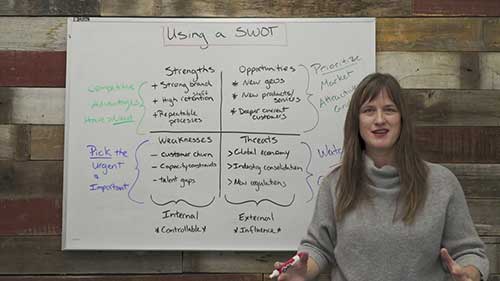 Using a SWOT
Strengths
+ Strong brand
+ High staff retention
+ Repeatable
processes
Opportunities
* New geos
* New products/
services
* Deeper current
customers
Competitive
Advantages
Prioritize
Market
Weaknesses
— Customer churn
— Capacity constraints
— talent gaps
Threats
> Global economy
> Industry consolidation
> New regulations
Pick the
Urgent
+
Important
Internal
* Controllable *
External
* Influence *